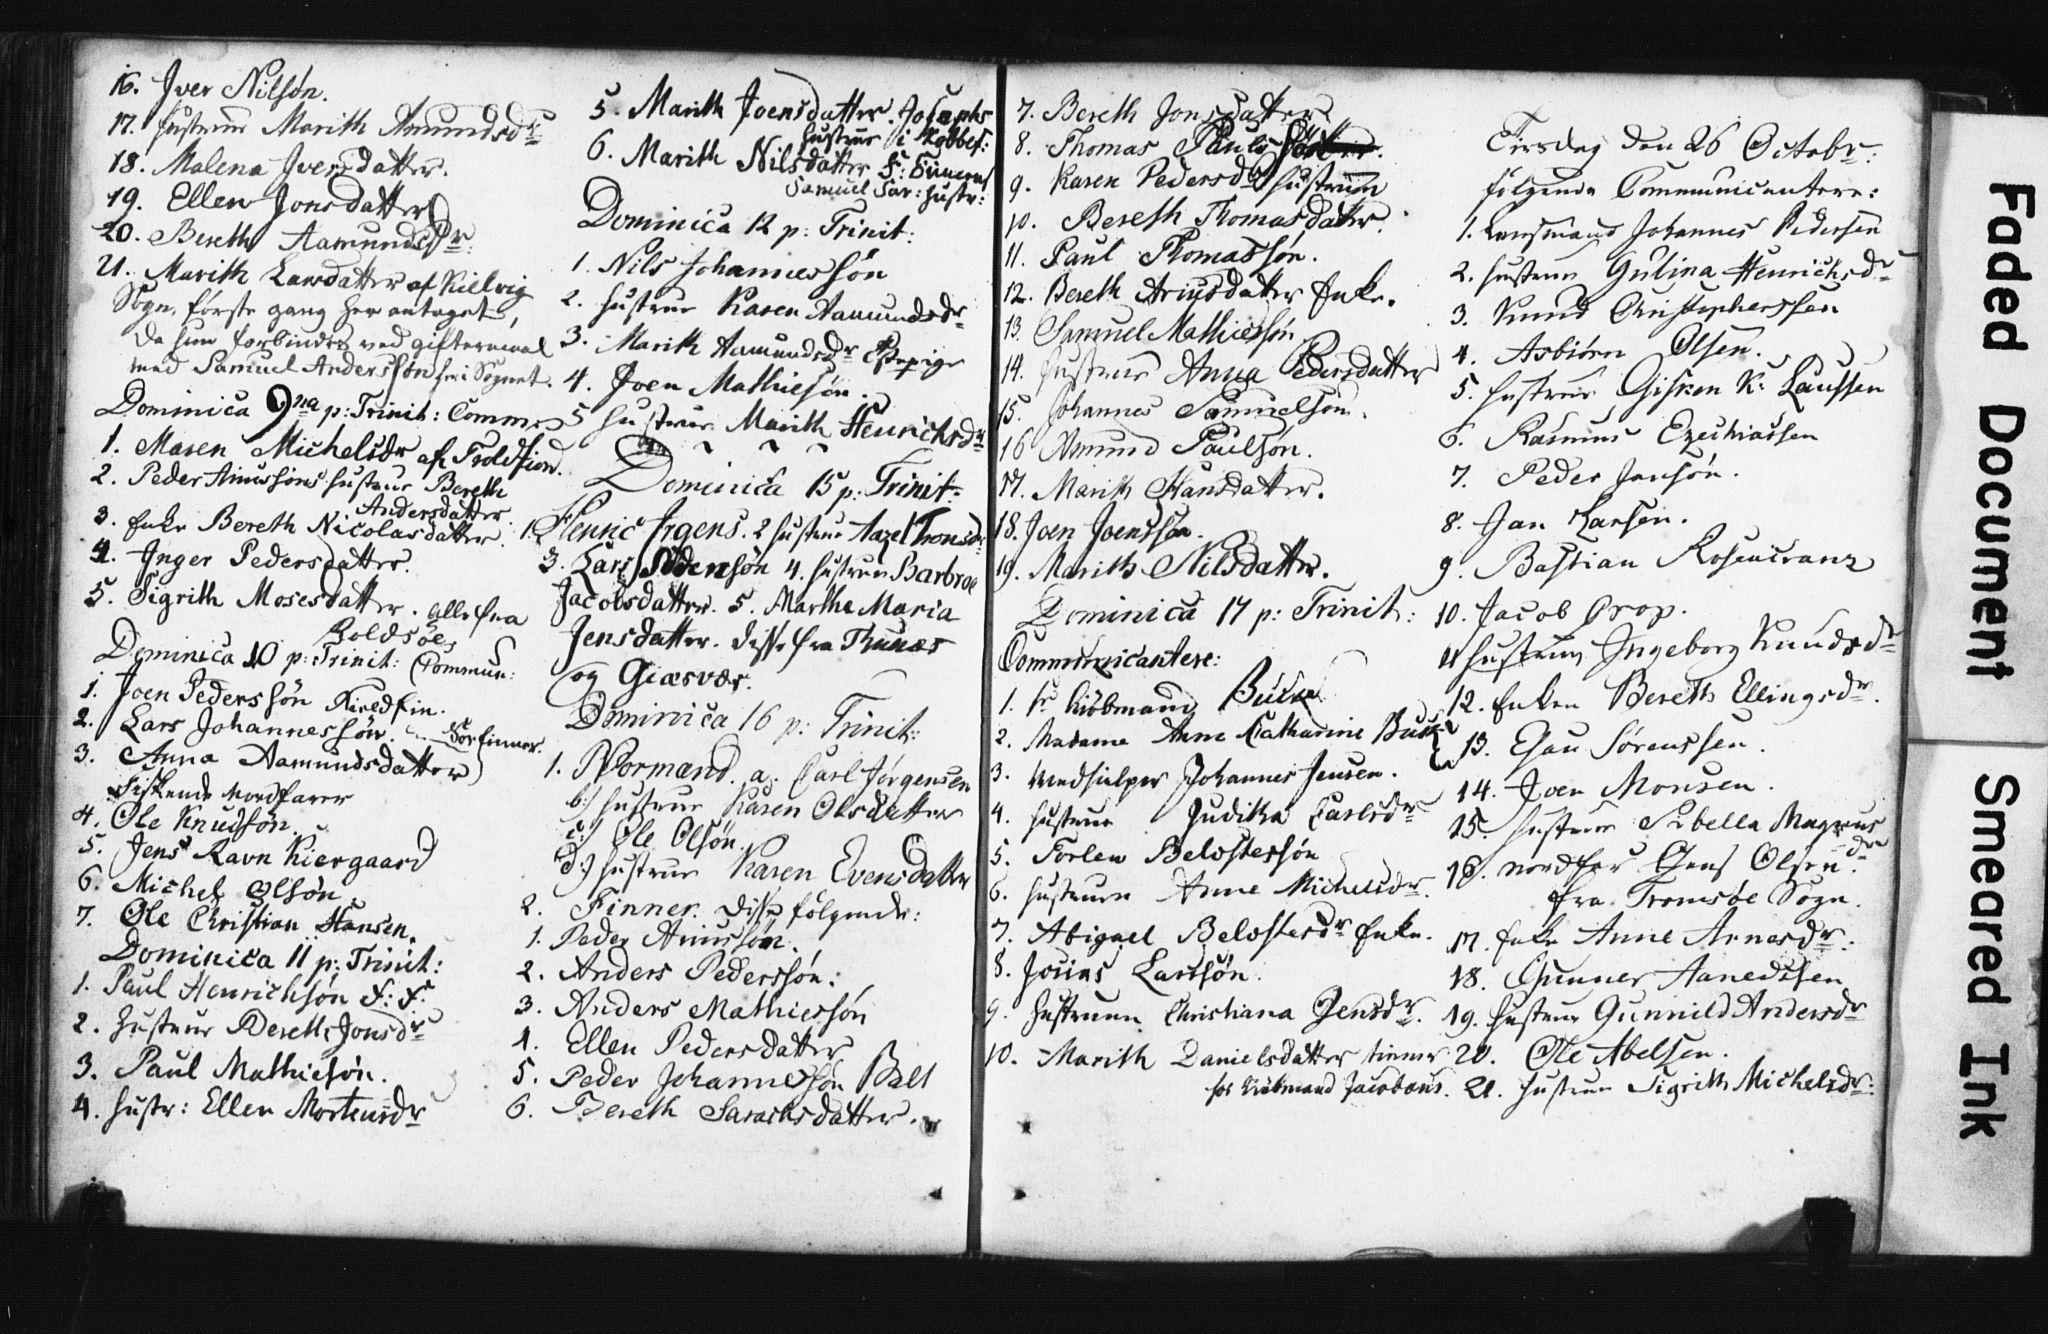 16. Iver Nilsøn.
17. Hustrue Marith Amundsdr
18. Malena Iversdatter.
19. Ellen Jonsdatter
20. Bereth Aamundsdr.
21. Marith Larsdatter af Kielvig
Sogn, første gang her antaget,
da hun forbindes ved giftermaal
med Samuel Anderssøn her i Sognet.
Dominica 9na p: Trinit: Comm
1. Maren Michelsdr af Troldfiord.
2. Peder Anussøns hustrue Bereth
Andersdatter.
3. Enke Bereth Nicolasdatter.
4. Inger Pedersdatter.
5. Sigrith Mosesdatter. alle fra
Roldsøe
Dominica 10 p: Trinit: Commun:
1. Joen Pederssøn
2. Lars Johannessøn. Søefinner.
3. Anna Aamundsdatter
Fiskende Nordfarer
4. Ole Knudsøn.
5. Jens Ravn Kiergaard
6. Michel Olsøn
7. Ole Christian Hansen.
Dominica 11 p: Trinit:
1. Paul Henrichsøn F: F:
2. Hustrue Bereth Jonsdr
3. Paul Mathiesøn.
4. Hustr: Ellen Mortensdr
5. Marith Joensdatter. Josephs
Hustrue i Kobbef:
6. Marith Nilsdatter F: Finnens
Samuel Sar: Hustr:
Dominica 12 p: Trinit:
1. Nils Johannessøn
2. Hustrue Karen Aamundsdr
3. Marith Aamundsdr Pige
4. Joen Mathiesøn.
5 Hustrue Marith Henrichsdr
Dominica 15 p: Trinit:
1. Henric Irgens. 2 Hustrue Aazel Tronsdr
3. Lars Pedersøn 4. Hustrue Barbroe
Jacobsdatter. 5. Marthe Maria
Jensdatter. disse fra Thunæs
og Giæsvær.
Dominica 16 p: Trinit:
1. Normænd. a. Carl Jørgensen
b:) Hustrue Karen Olsdatter
c:) Ole Olsøn.
d:) Hustrue Karen Evensdatter
2. Finner. disse følgende:
1. Peder Anussøn.
2. Anders Pederssøn:
3. Anders Mathiessøn
4. Ellen Pedersdatter
5. Peder Johannessøn Balt
6. Bereth Sarachsdatter.
7. Bereth Jonsdatter
8. Thomas Pauls
9. Karen Pedersdr Hustrue
10. Bereth Thomasdatter.
11. Paul Thomassøn.
12. Bereth Ariusdatter Enke.
13 Samuel Mathiessøn
14. Hustrue Anna Pedersdatter
15. Johannes Samuelsøn.
16 Amund Paulsøn.
17. Marith Hansdatter.
18. Joen Joenssøn.
19. Marith Nilsdatter.
Dominica 17 p: Trinit:
Communicantere:
1. Hr Kiøbmand Buck
2. Madame Anne Catharine Buck
3. Medhielper Johannes Jensen.
4. Hustrue Judika Carlsdr
5. Torlev Belostersøn
6. Hustruen Anne Michelsdr.
7. Abigael Belostersdr Enke.
8. Jonas Larssøn.
9. Hustruen Christiana Jensdr.
10. Marith Danielsdatter tiener
hos Kiøbmand Jacobæus.
Tirsdag den 26 Octobr:
følgende Communicantere:
1. Lensmand Johannes Pedersen
2. Hustrue Gulina Henrichsdr
3. Knud Christophersen
4. Asbiørn Olsen.
5. Hustrue Gisken K: Laussen
6. Rasmus Ezechiassen
7. Peder Jansøn.
8. Jan Larsen.
9. Bastian Rosencranz
10. Jacob Grop.
11 Hustrue Ingeborg Knudsdr
12. Enken Bereth Ellingsdr.
13. Esau Sørenssen.
14. Joen Monsen.
15. Hustrue Sibella Magnusdr
16. Nordfar Jens Olsen.
fra Tromsøe Sogn.
17. Enke Anne Arnesdr.
18. Gunner Aanedsen
19. Hustrue Gunnild Andersdr
20. Ole Abelsen.
21. Hustrue Sigrith Michelsdr:
Faded Document Smeared Ink